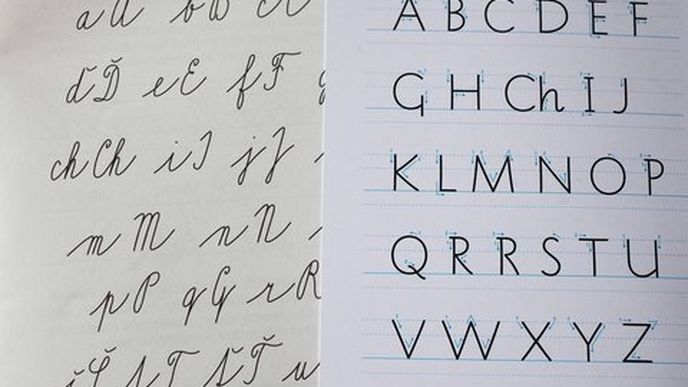 a A b B c C
ď Ď e E f F
ch Ch i I j J
m M n N
p P q Q r R
š Š t T ť Ť u
A B C D E F
G H Ch I J
K L M N O P
Q R R S T U
V W X Y Z